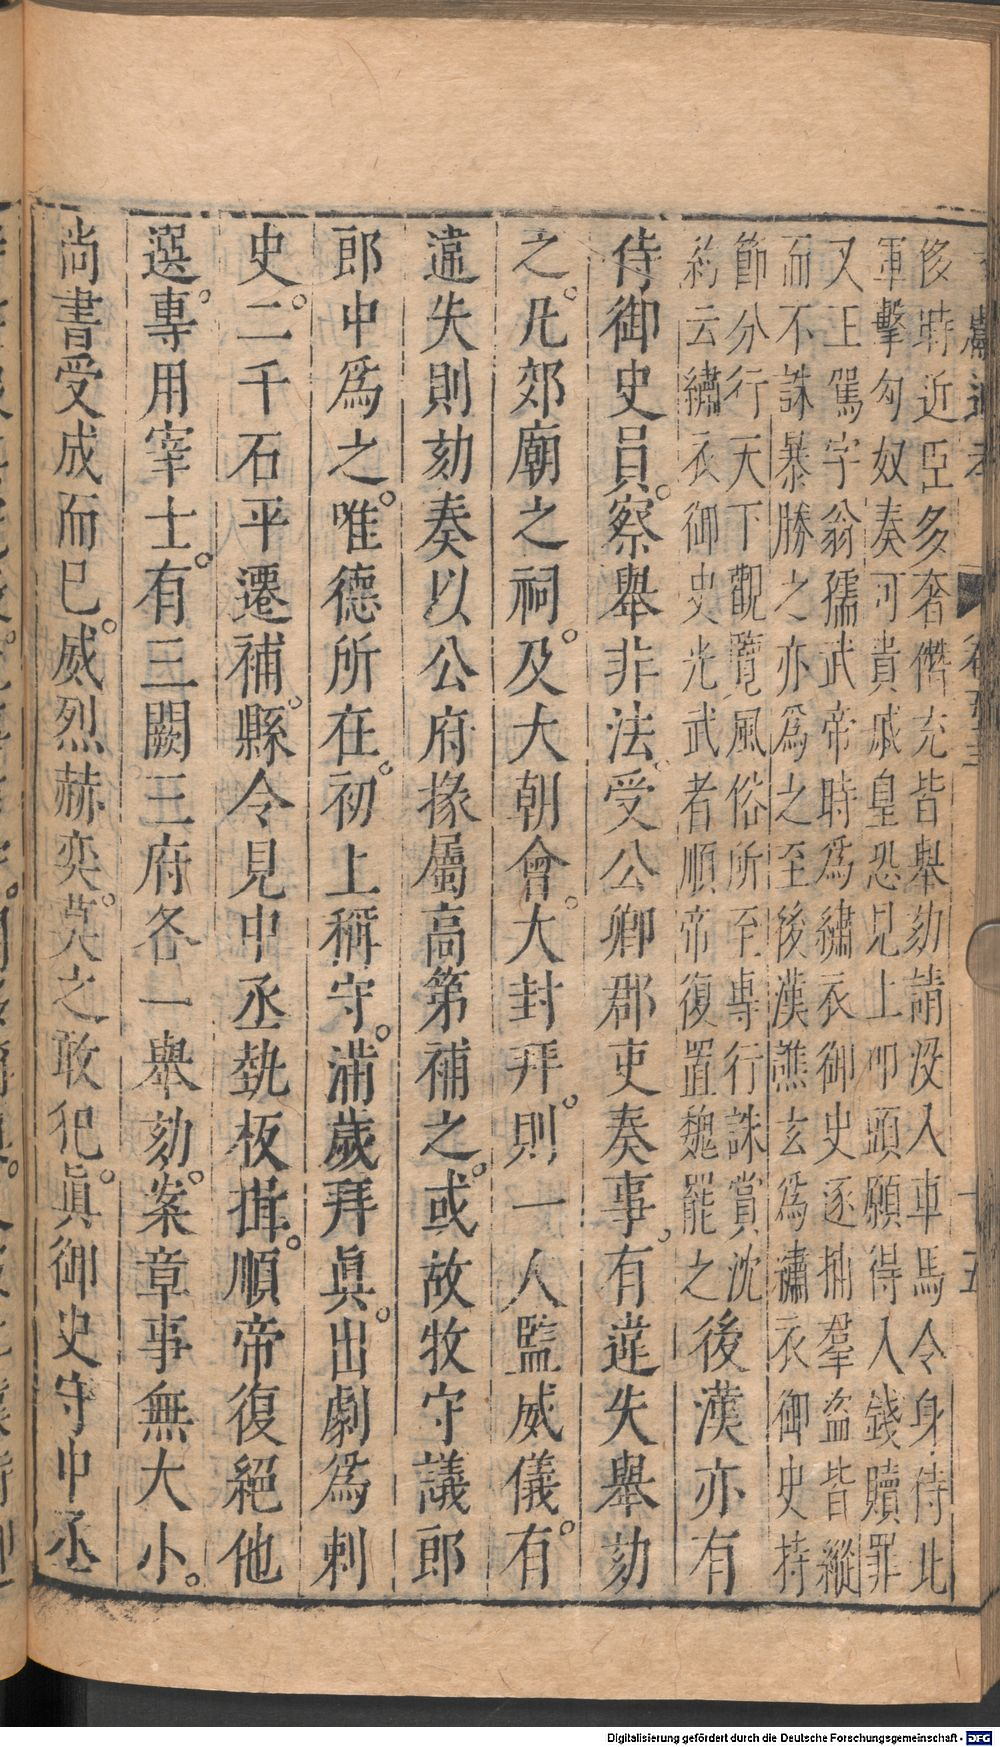 文獻通考 卷五十三 十五
侈時近臣多奢僭充皆舉劾請没入車馬令身待北
軍擊匈奴奏可貴戚皇恐見上叩頭願得入錢贖罪
又王駕字翁孺武帝時為繡衣御史逐捕羣盗皆縱
而不誅暴勝之亦為之至後漢譙玄為繡衣御史持
節分行天下觀覽風俗所至專行誅賞沈
約云繡衣御史光武省順帝復置魏罷之
後漢亦有
侍御史員。察舉非法。受公卿郡吏奏事。有違失舉劾
之。凡郊廟之祠。及大朝會。大封拜。則一人監威儀。有
違失則劾奏以公府掾屬高第補之。或故牧守議郎
郎中爲之。唯德所在。初上稱守。滿歲拜眞。出劇爲刺
史。二千石平遷補。縣令見中丞執板揖。順帝復絕他
選。專用宰士。有三闕三府各一舉劾。案章事無大小。
尚書受成而已。威烈赫奕。莫之敢犯。眞御史守中丞
Digitalisierung gefördert durch die Deutsche Forschungsgemeinschaft - DFG